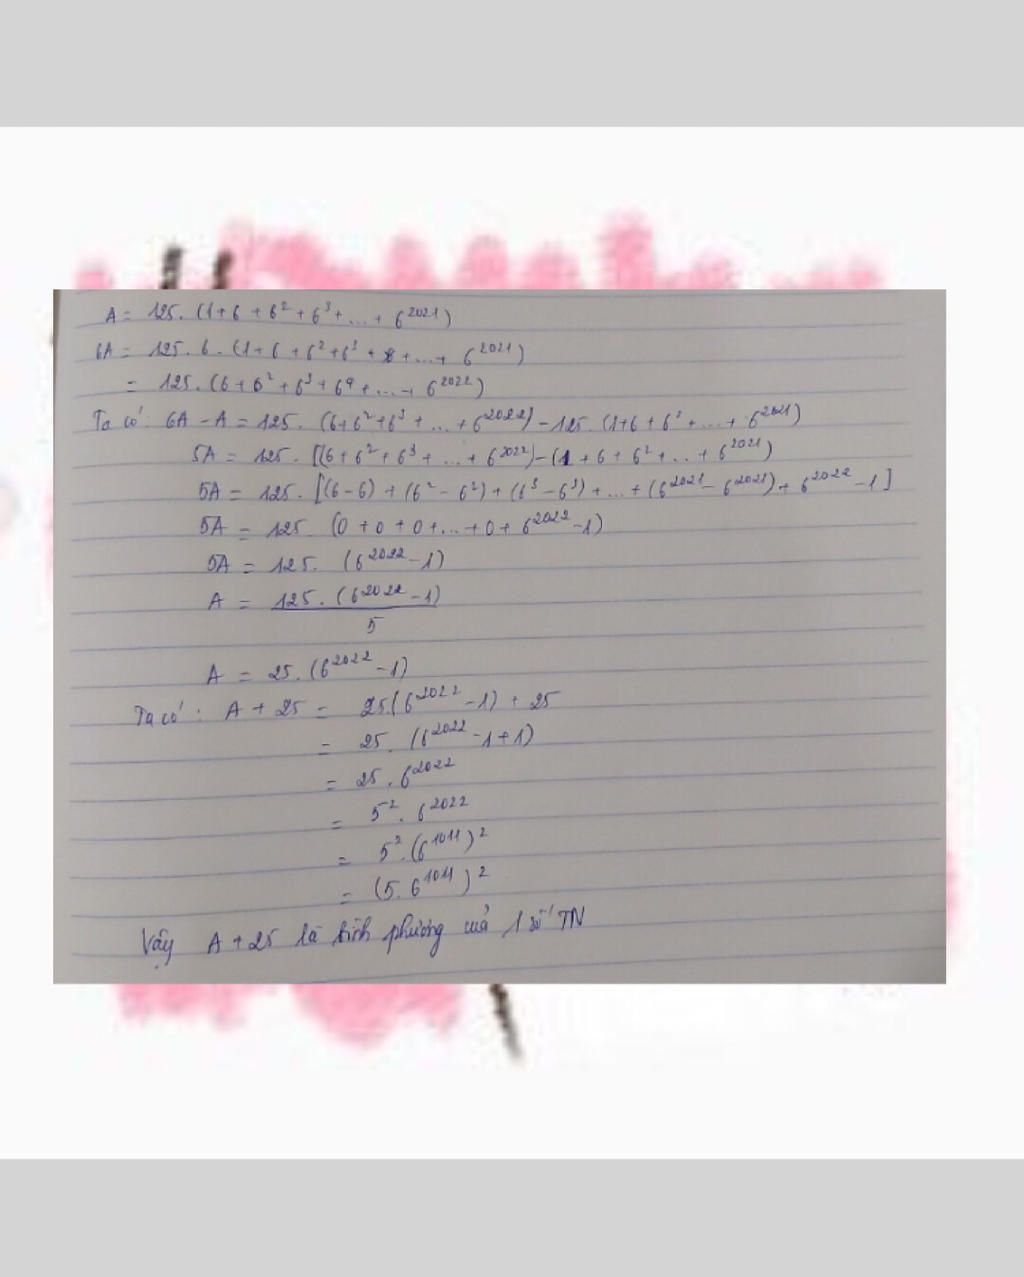 A = 125. (1+6+6²+6³+...+6²⁰²¹)
6A = 125.6.(1+6+6²+6³+...+6²⁰²¹)
= 125.(6+6²+6³+6⁴+...+6²⁰²²)
Ta có: 6A - A = 125. (6+6²+6³+...+6²⁰²²) - 125. (1+6+6²+...+6²⁰²¹)
5A = 125. [(6+6²+6³+...+6²⁰²²)-(1+6+6²+...+6²⁰²¹)
5A = 125. [(6-6)+(6²-6²)+(6³-6³)+...+(6²⁰²¹-6²⁰²¹)+6²⁰²²-1]
5A = 125. (0+0+0+...+0+6²⁰²²-1)
5A = 125. (6²⁰²²-1)
A = 125.(6²⁰²²-1)
5
A = 25.(6²⁰²²-1)
Ta có: A + 25 = 25.(6²⁰²²-1) + 25
= 25. (6²⁰²²-1+1)
= 25. 6²⁰²²
= 5². 6²⁰²²
= 5².(6¹⁰¹¹)²
= (5.6¹⁰¹¹)²
Vậy A + 25 là bình phương của 1 số TN